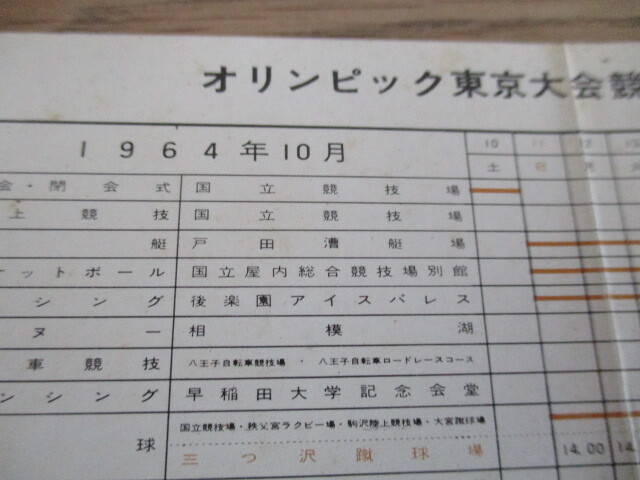 オリンピック東京大会競
1964年10月 10 11 12 13
土 日 月 火
会・閉会式 国立競技場
上競技 国立競技場
艇 戸田漕艇場
ケットボール 国立屋内総合競技場別館
シング 後楽園アイスパレス
ヌー 相模湖
車競技 八王子自転車競技場・八王子自転車ロードレースコース
ンシング 早稲田大学記念会堂
球 国立競技場・秩父宮ラグビー場・駒沢陸上競技場・大宮蹴球場
三つ沢蹴球場 14.00 14.